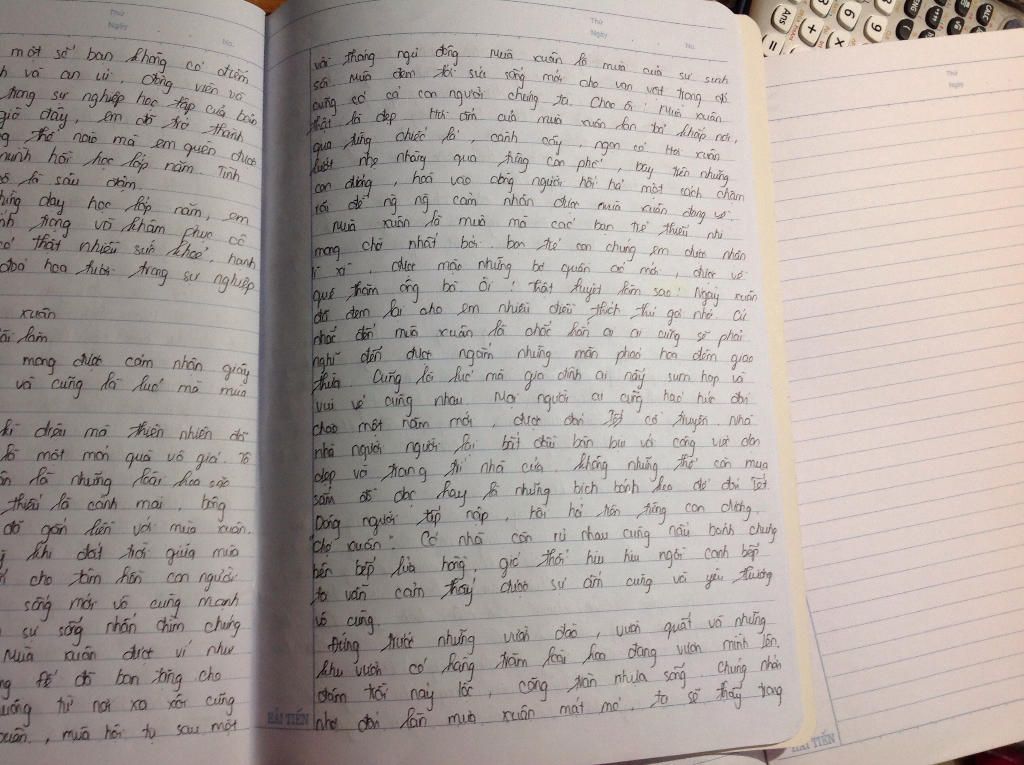 một số bạn không có điểm
và an ủi, động viên và
trong sự nghiệp học tập của bản
giờ đây, em đã trở thành
thế nào mà em quên được
mình hồi học lớp năm. Tình
là sâu đậm.
dạy học lớp năm, em
trọng và khâm phục cô
có thật nhiều sức khoẻ, hạnh
đoá hoa tươi trong sự nghiệp
xuân
làm
mong được cảm nhận giây
và cũng là lúc mà mùa
diệu mà thiên nhiên đã
là một món quà vô giá. Tô
là những loài hoa
thiếu là cành mai, bông
đã gắn liền với mùa xuân.
khi đất trời giữa mùa
cho tâm hồn con người
sống mới vô cùng mạnh
sự sống nhấn chìm chúng
Mùa xuân được ví như
Đế đã ban tặng cho
từ nơi xa xôi cũng
xuân, mùa hội tụ sau một
vài tháng ngủ đông. Mùa xuân là mùa của sự sinh
sôi. Mùa đem tới sức sống mới cho vạn vật trong đó
cũng có cả con người chúng ta. Chao ôi! Mùa xuân
thật là đẹp. Hơi ấm của mùa xuân lan toả khắp nơi,
qua từng chiếc lá, cành cây, ngọn cỏ. Hơi xuân
lướt nhẹ nhàng qua từng con phố, bay trên những
con đường, hoà vào dòng người hối hả một cách chậm
rãi để ng ng cảm nhận được mùa xuân đang về.
Mùa xuân là mùa mà các bạn trẻ thiếu nhi
mong chờ nhất bởi bọn trẻ con chúng em được nhận
lì xì, được mặc những bộ quần áo mới, được về
quê thăm ông bà. Ôi! Thật tuyệt làm sao! Ngày xuân
đã đem lại cho em nhiều điều thích thú gợi nhớ. Cứ
nhắc đến mùa xuân là chắc hẳn ai ai cũng sẽ phải
nghĩ đến được ngắm những màn pháo hoa đêm giao
thừa. Cũng là lúc mà gia đình ai nấy sum họp và
vui vẻ cùng nhau. Mọi người ai cũng háo hức đón
chào một năm mới, được đón Tết cổ truyền. Nhà
nhà người người lại bắt đầu bận bịu với công việc dọn
dẹp và trang trí nhà cửa. Không những thế còn mua
sắm đồ đạc hay là những bịch bánh kẹo để đón Tết.
Dòng người tấp nập, hối hả trên từng con đường,
"chợ xuân". Có nhà còn rủ nhau cùng nấu bánh chưng
bên bếp lửa hồng, gió thổi hiu hiu ngồi cạnh bếp
ta vẫn cảm thấy được sự ấm cúng và yêu thương
vô cùng.
Đứng trước những vườn đào, vườn quất và những
khu vườn có hàng trăm loài hoa đang vươn mình lên,
đâm trồi nảy lộc, căng tràn nhựa sống. Chúng nhận
nhơ đón làn mưa xuân mát mẻ, ta sẽ thấy trong
HẢI TIẾN
HẢI TIẾN
Thứ
Ngày
No.
Thứ
Ngày
No.
Thứ
Ngày
Ans